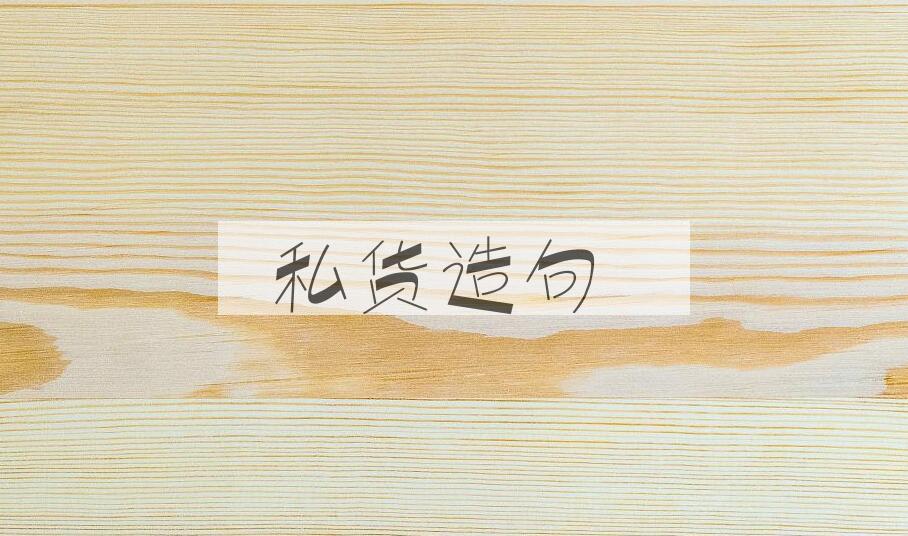 私货造句